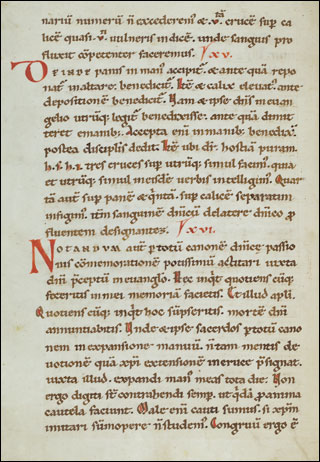 nariū numerū n̄ excederem⁹ & v̄tā crucē sup ca
licē quasi v̄ vulneris indicē. unde sanguis pro
fluxit cōpetenter faceremus. xv.
DEINDE panis in man⁹ accipit̄ & ante quā repo
nat̄ in altare; benedicit̄. Itē & calix elevat̄. ante
depositionē benedicit̄. Nam & ipse dn̄s in evan
gelio utrūq; legit̄ benedixisse. ante quā dimit
teret e manib; Accepta enī in manib; benedixit.
postea discipl̄is dedit. Itē ubi dr̄. hostiā puram.
h. s. h. i. tres cruces sup utrūq; simul facim⁹. quia
et utrūq; simul meisdē verbis intelligim⁹. Quar
tā aut̄ sup panē & q̄ntā. sup calicē separatim
infigim⁹. itm̄ sanguinē dn̄icū de latere dn̄ico p̄
fluentem designantes. xvi.
NOTANDUM aut̄ p totū canonē dn̄icę passio
nis cōmemorationē potissimū actitari iuxta
dn̄i pceptū in evanglo. Hec inqt̄ quotiens cūq;
feceritis in mei memoriā facietis. Et illud apli.
Quotiens cūq; inqt̄ hoc sūpseritis. mortē dn̄i
annuntiabitis. Unde & ipse sacerdos p totū cano
nem in expansione manuū. n̄ tam mentis de
votionē quā xp̄i extensionē in cruce p̄signat.
iuxta illud. expandi man⁹ meas tota die. Non
ergo digiti st̄ contrahendi semp. ut q̄dā p̄ nimia
cautela faciunt. Male enī cauti sum⁹. si xp̄m
imitari sūmopere n̄ studem⁹. Congruū ergo ē